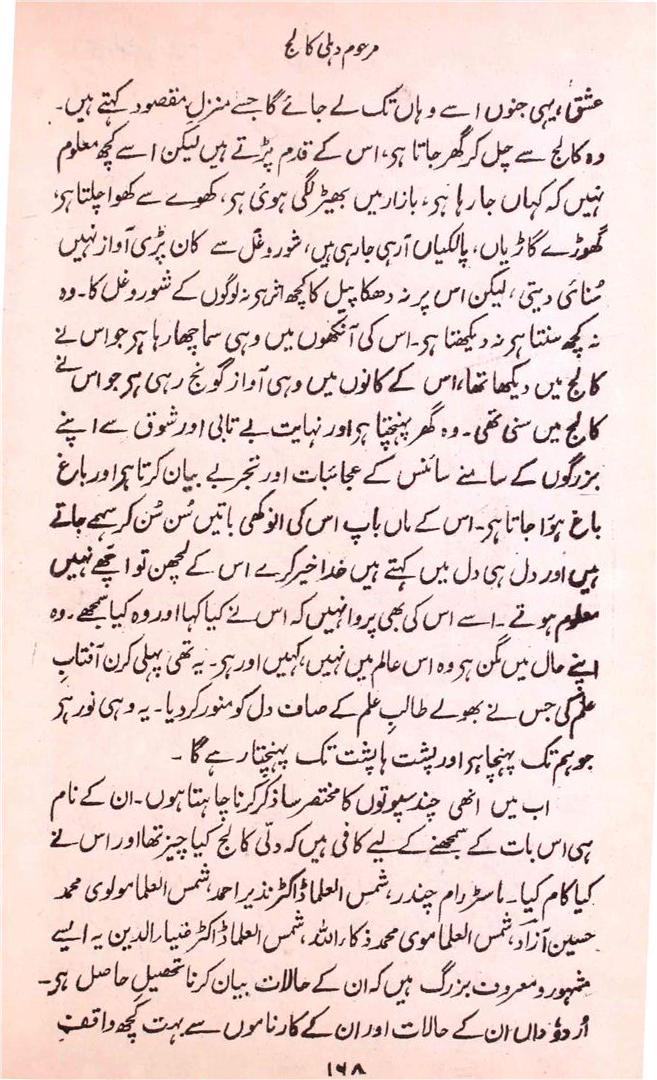 مرحوم دہلی کالج
عشق! یہی جنوں اسے وہاں تک لے جائے گا جسے منزلِ مقصود کہتے ہیں۔
وہ کالج سے چل کر گھر جاتا ہر، اس کے قدم پڑتے ہیں لیکن اسے کچھ معلوم
نہیں کہ کہاں جا رہا ہر، بازار میں بھیڑ لگی ہوئی ہر، کھوے سے کھوا چلتا ہر،
گھوڑے گاڑیاں، پالکیاں آرہی جارہی ہیں، شور و غل سے کان پڑی آواز نہیں
سُنائی دیتی، لیکن اس پر نہ دھکا پیل کا کچھ اثر ہر نہ لوگوں کے شور و غل کا۔ وہ
نہ کچھ سنتا ہر نہ دیکھتا ہر۔ اس کی آنکھوں میں وہی سما چھا رہا ہر جو اس نے
کالج میں دیکھا تھا، اس کے کانوں میں وہی آواز گونج رہی ہر جو اس نے
کالج میں سنی تھی۔ وہ گھر پہنچتا ہر اور نہایت بے تابی اور شوق سے اپنے
بزرگوں کے سامنے سائنس کے عجائبات اور تجربے بیان کرتا ہر اور باغ
باغ ہؤا جاتا ہر۔ اس کے ماں باپ اس کی انوکھی باتیں سُن سُن کر سہمے جاتے
ہیں اور دل ہی دل میں کہتے ہیں خدا خیر کرے اس کے لچھن تو اچھے نہیں
معلوم ہوتے۔ اسے اس کی بھی پروا نہیں کہ اس نے کیا کہا اور وہ کیا سمجھے۔ وہ
اپنے حال میں مگن ہر وہ اس عالم میں نہیں، کہیں اور ہر۔ یہ تھی پہلی کرن آفتابِ
علم کی جس نے بھولے طالبِ علم کے صاف دل کو منور کر دیا۔ یہ وہی نور ہر
جو ہم تک پہنچا ہر اور پشت ہا پشت تک پہنچتا رہے گا۔
اب میں انھی چند سپوتوں کا مختصر سا ذکر کرنا چاہتا ہوں۔ ان کے نام
ہی اس بات کے سمجھنے کے لیے کافی ہیں کہ دلّی کالج کیا چیز تھا اور اس نے
کیا کام کیا۔ ماسٹر رام چندر، شمس العلما ڈاکٹر نذیر احمد، شمس العلما مولوی محمد
حسین آزاد، شمس العلما موی محمد ذکاء اللہ، شمس العلما ڈاکٹر ضیاء الدین یہ ایسے
مشہور و معروف بزرگ ہیں کہ ان کے حالات بیان کرنا تحصیلِ حاصل ہر۔
اُردو داں ان کے حالات اور ان کے کارناموں سے بہت کچھ واقف
۱۶۸